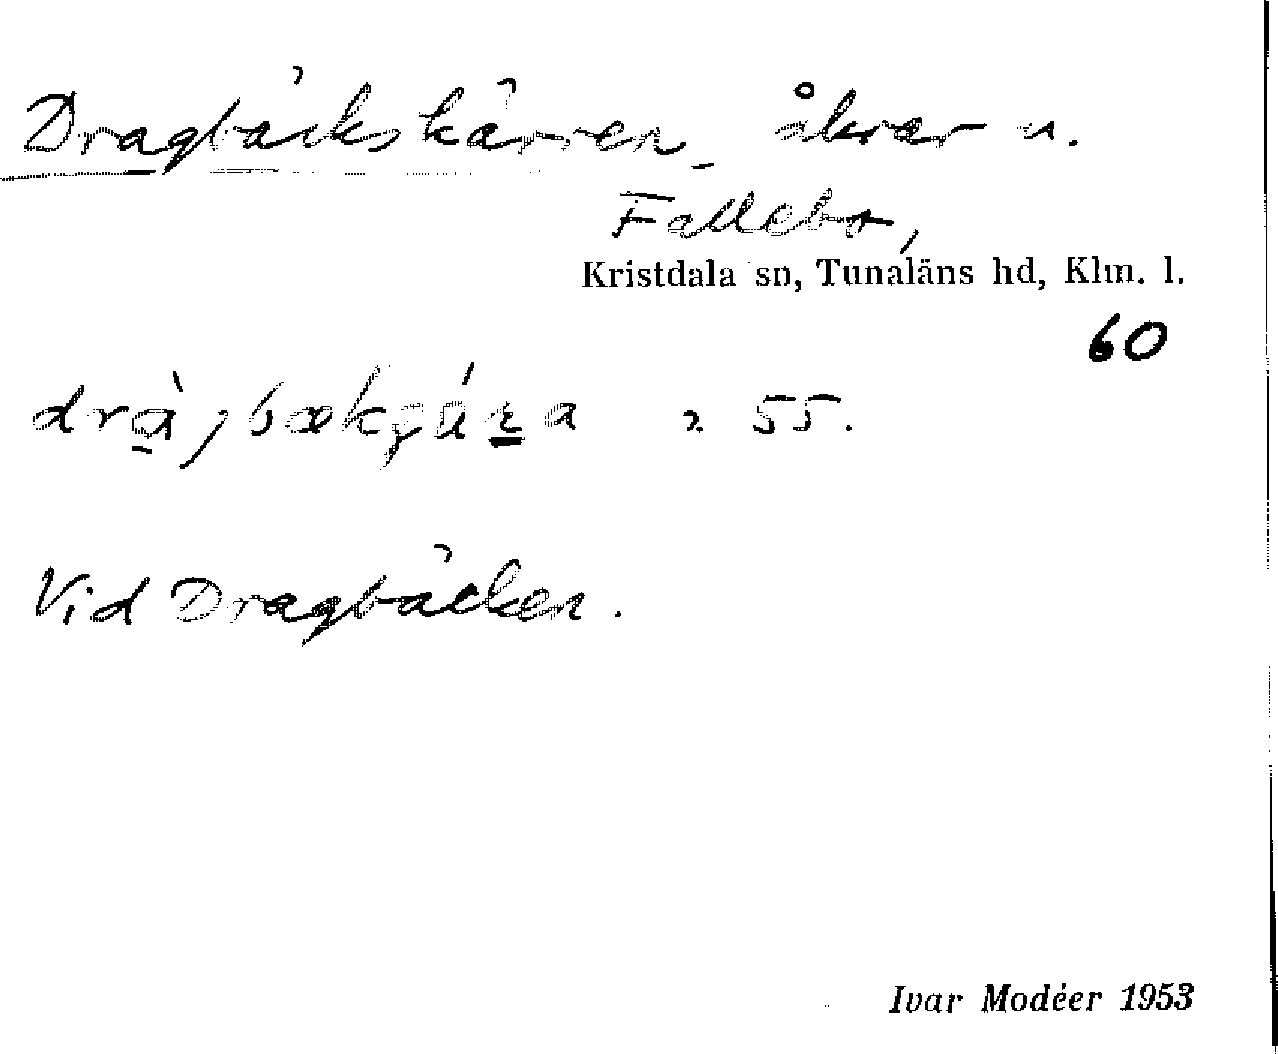 Dragbäckskärren, åkrar u.
Fallebo,
Kristdala sn, Tunaläns hd, Klm. l.
60
55.
Vid Dragbäcken.
Ivar Modéer 1953